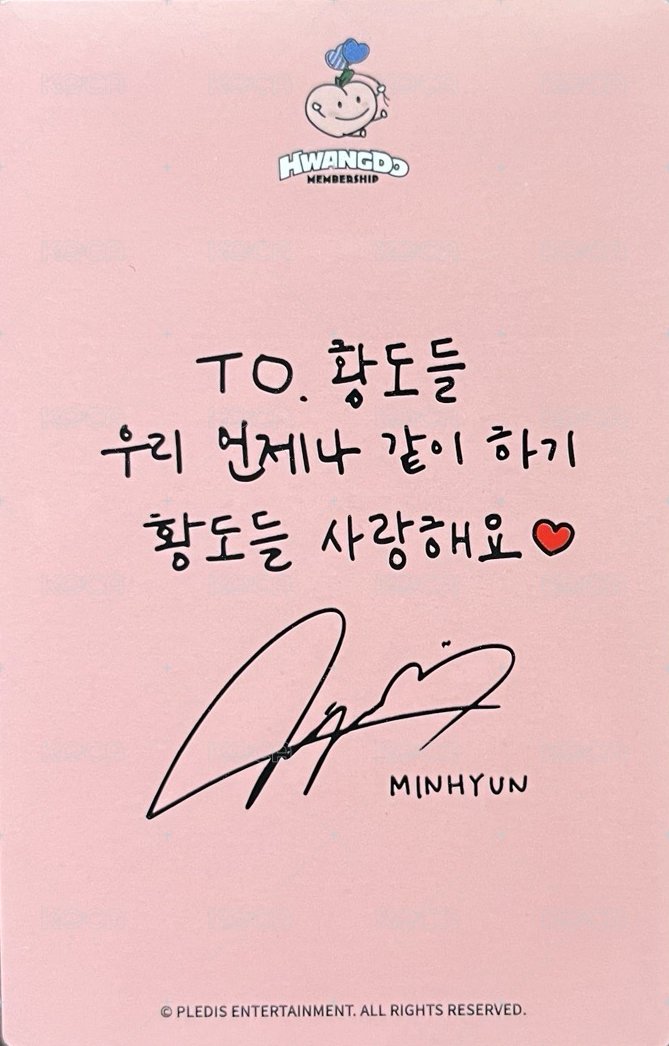 HWANGDO
MEMBERSHIP
TO. 황도들
우리 언제나 같이 하기
황도들 사랑해요
MINHYUN
© PLEDIS ENTERTAINMENT. ALL RIGHTS RESERVED.